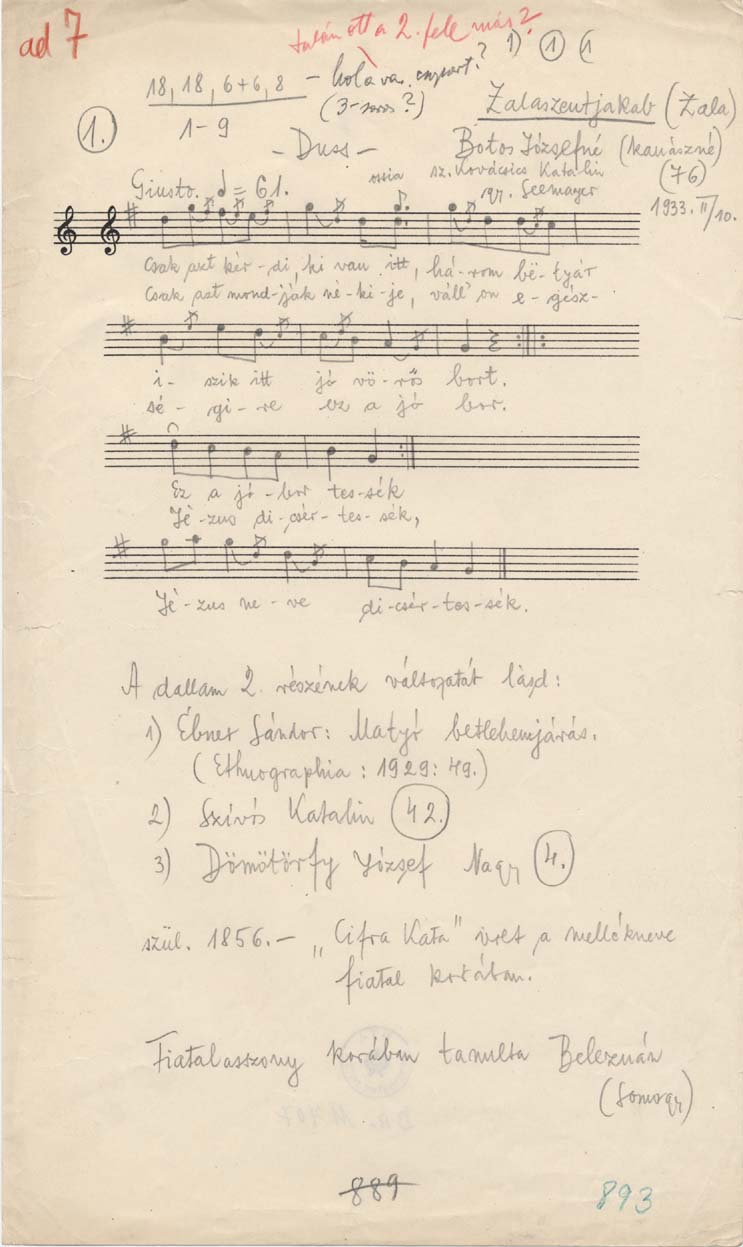 ad 7
talán ott a 2. fele más?
1) 1 (1
18, 18, 6+6, 8 – hol va. csoport?
1-9 (3-soros?)
1.
– Duss –
Zalaszentjakab (Zala)
Botos Józsefné (kanászné)
sz. Kovácsics Katalin (76)
gy. Seemayer
1933. II/10.
Giusto. ♩ = 61.
ossia
Csak aszt kér-di, ki van itt, há-rom bë-tyár
Csak aszt mond-ják né-ki-je, váll' on e-gész-
i- szik itt jó vö-rös bort.
sé- gi-re ez a jó bor.
Ez a jó-bor tes-sék
Jé-zus di-csér-tes-sék,
Jé-zus ne-ve di-csér-tes-sék.
A dallam 2. részének változatát lásd:
1) Ébner Sándor: Matyó betlehemjárás.
(Ethnographia: 1929: 49.)
2) Szívós Katalin 42.
3) Dömötörfy József Nagy 4.
szül. 1856. – „Cifra Kata" vret a mellékneve
fiatal korában.
Fiatalasszony korában tanulta Beleznán
(Somogy)
889
893